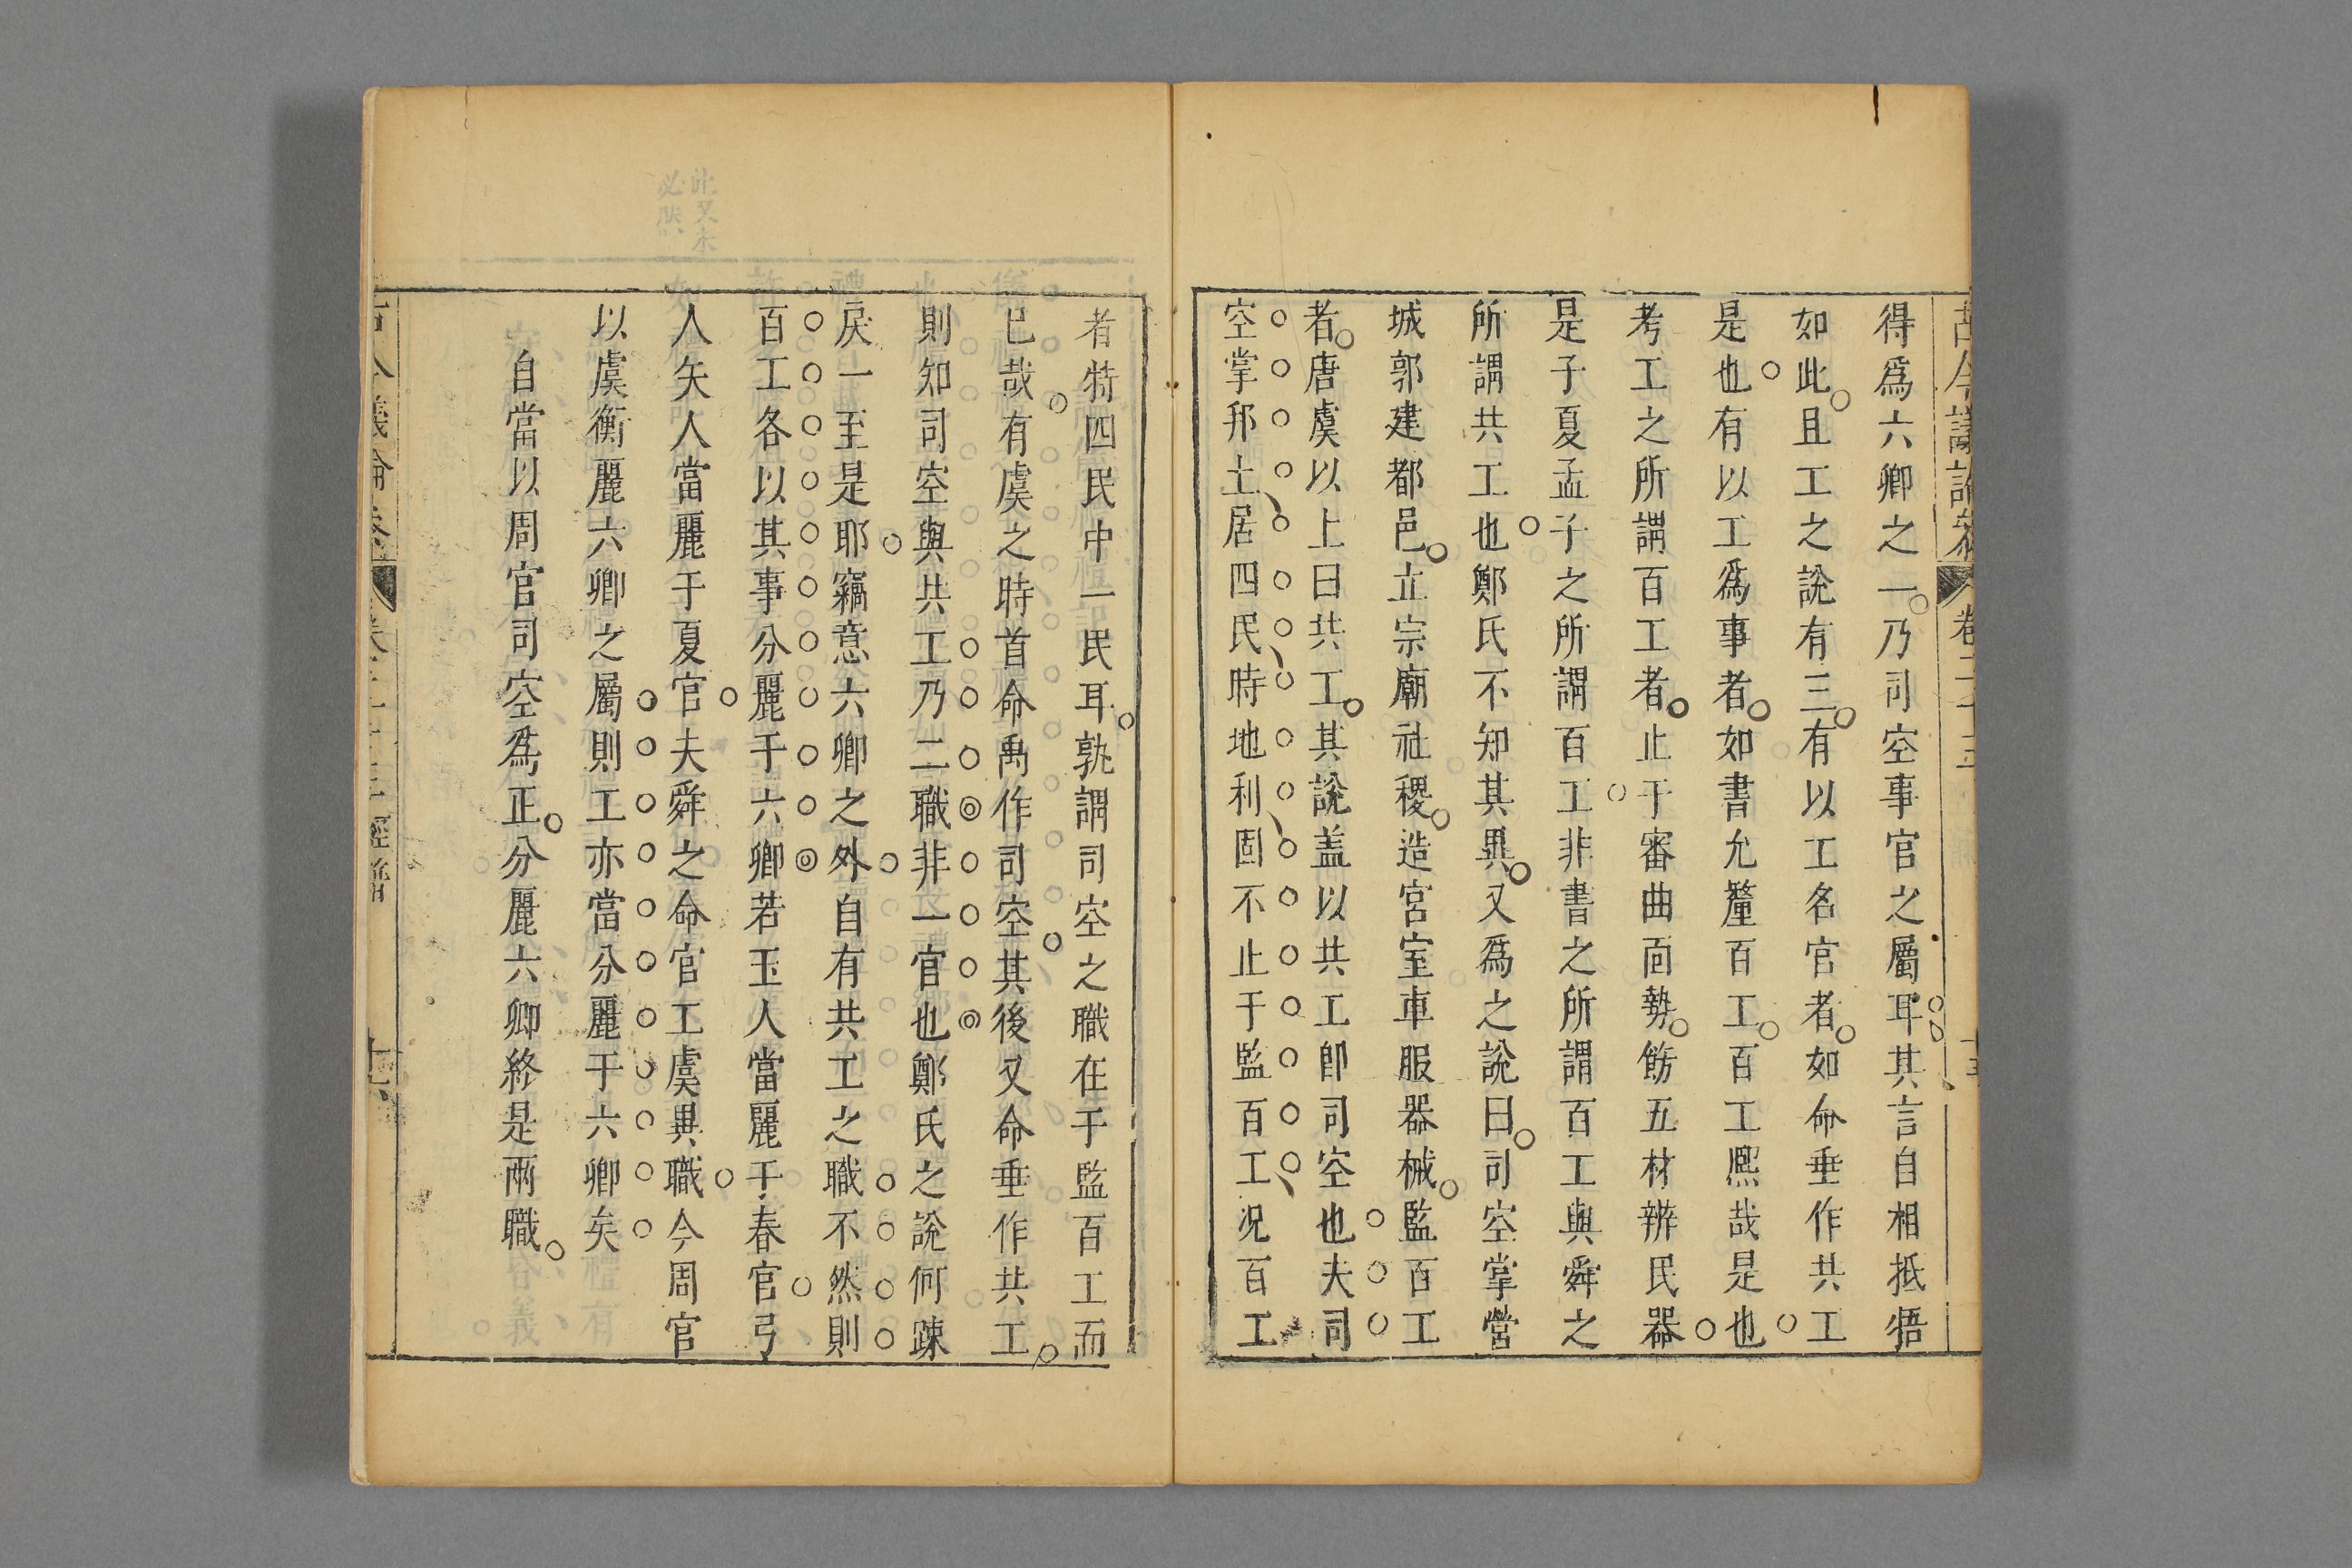 得爲六卿之一乃司空事官之屬耳其言自相抵牾
如此且工之說有三有以工名官者如命垂作共工
是也有以工爲事者如書允釐百工百工熈哉是也
考工之所謂百工者止于審曲面勢飭五材辨民器
是子夏孟子之所謂百工非書之所謂百工與舜之
所謂共工也鄭氏不知其異又爲之說曰司空掌營
城郭建都邑立宗廟社稷造宮室車服器械監百工
者唐虞以上曰共工其說盖以共工卽司空也夫司
空掌邦土居四民時地利固不止于監百工況百工
者特四民中一民耳孰謂司空之職在于監百工而
已哉有虞之時首命禹作司空其後又命垂作共工
則知司空與共工乃二職非一官也鄭氏之說何踈
戾一至是耶竊意六卿之外自有共工之職不然則
百工各以其事分麗于六卿若玉人當麗于春官弓
人矢人當麗于夏官夫舜之命官工虞異職今周官
以虞衡麗六卿之屬則工亦當分麗于六卿矣
自當以周官司空爲正分麗六卿終是兩職